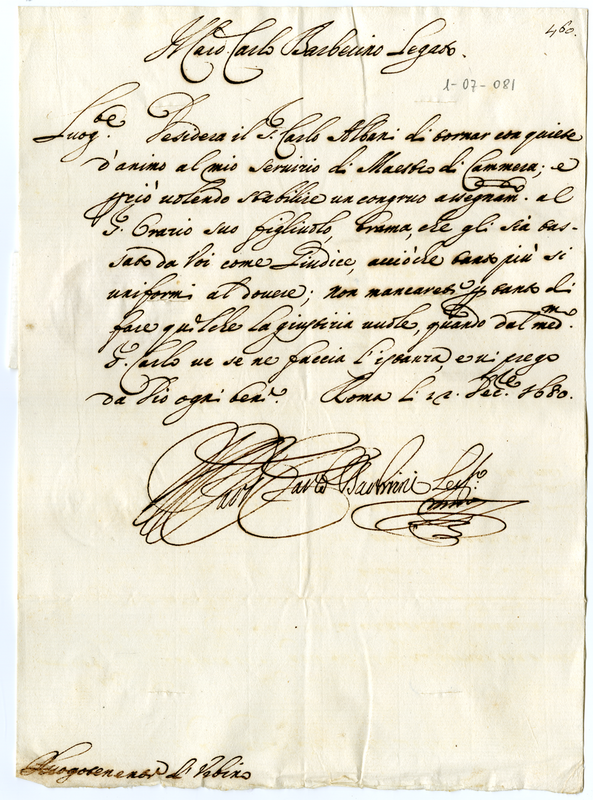 460.
Il Card. Carlo Barberino Legato.
1-07-081
Luogte. Desidera il S. Carlo Albani di tornar con quiete
d'animo al mio servizio di Maestro di Cammera; e
perciò volendo stabilire un congruo assegnam. al
S. Orazio suo figliuolo, brama, che gli sia tas-
sato da Voi come Giudice, acciòche tanto più si
uniformi al dovere; non mancarete per tanto di
fare quelche la giustitia vuole, quando dal medmo.
S. Carlo ve se ne faccia l'istanza, e vi prego
da Dio ogni bene. Roma li 21. Xbre. 1680.
Card Carlo Barberini Legto
Luogotenente d'Urbino